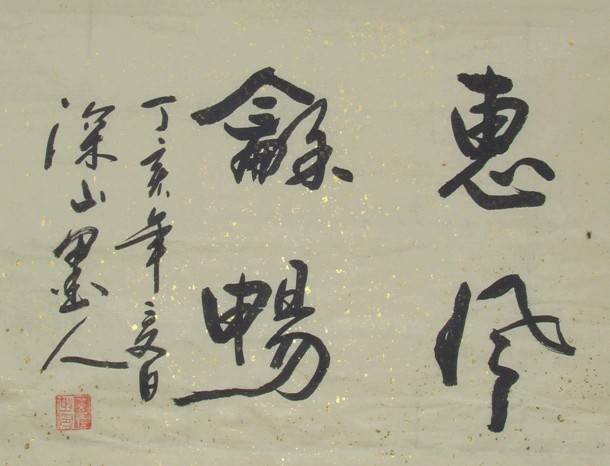 惠風
龢暢
丁亥年夏日
深山墨人